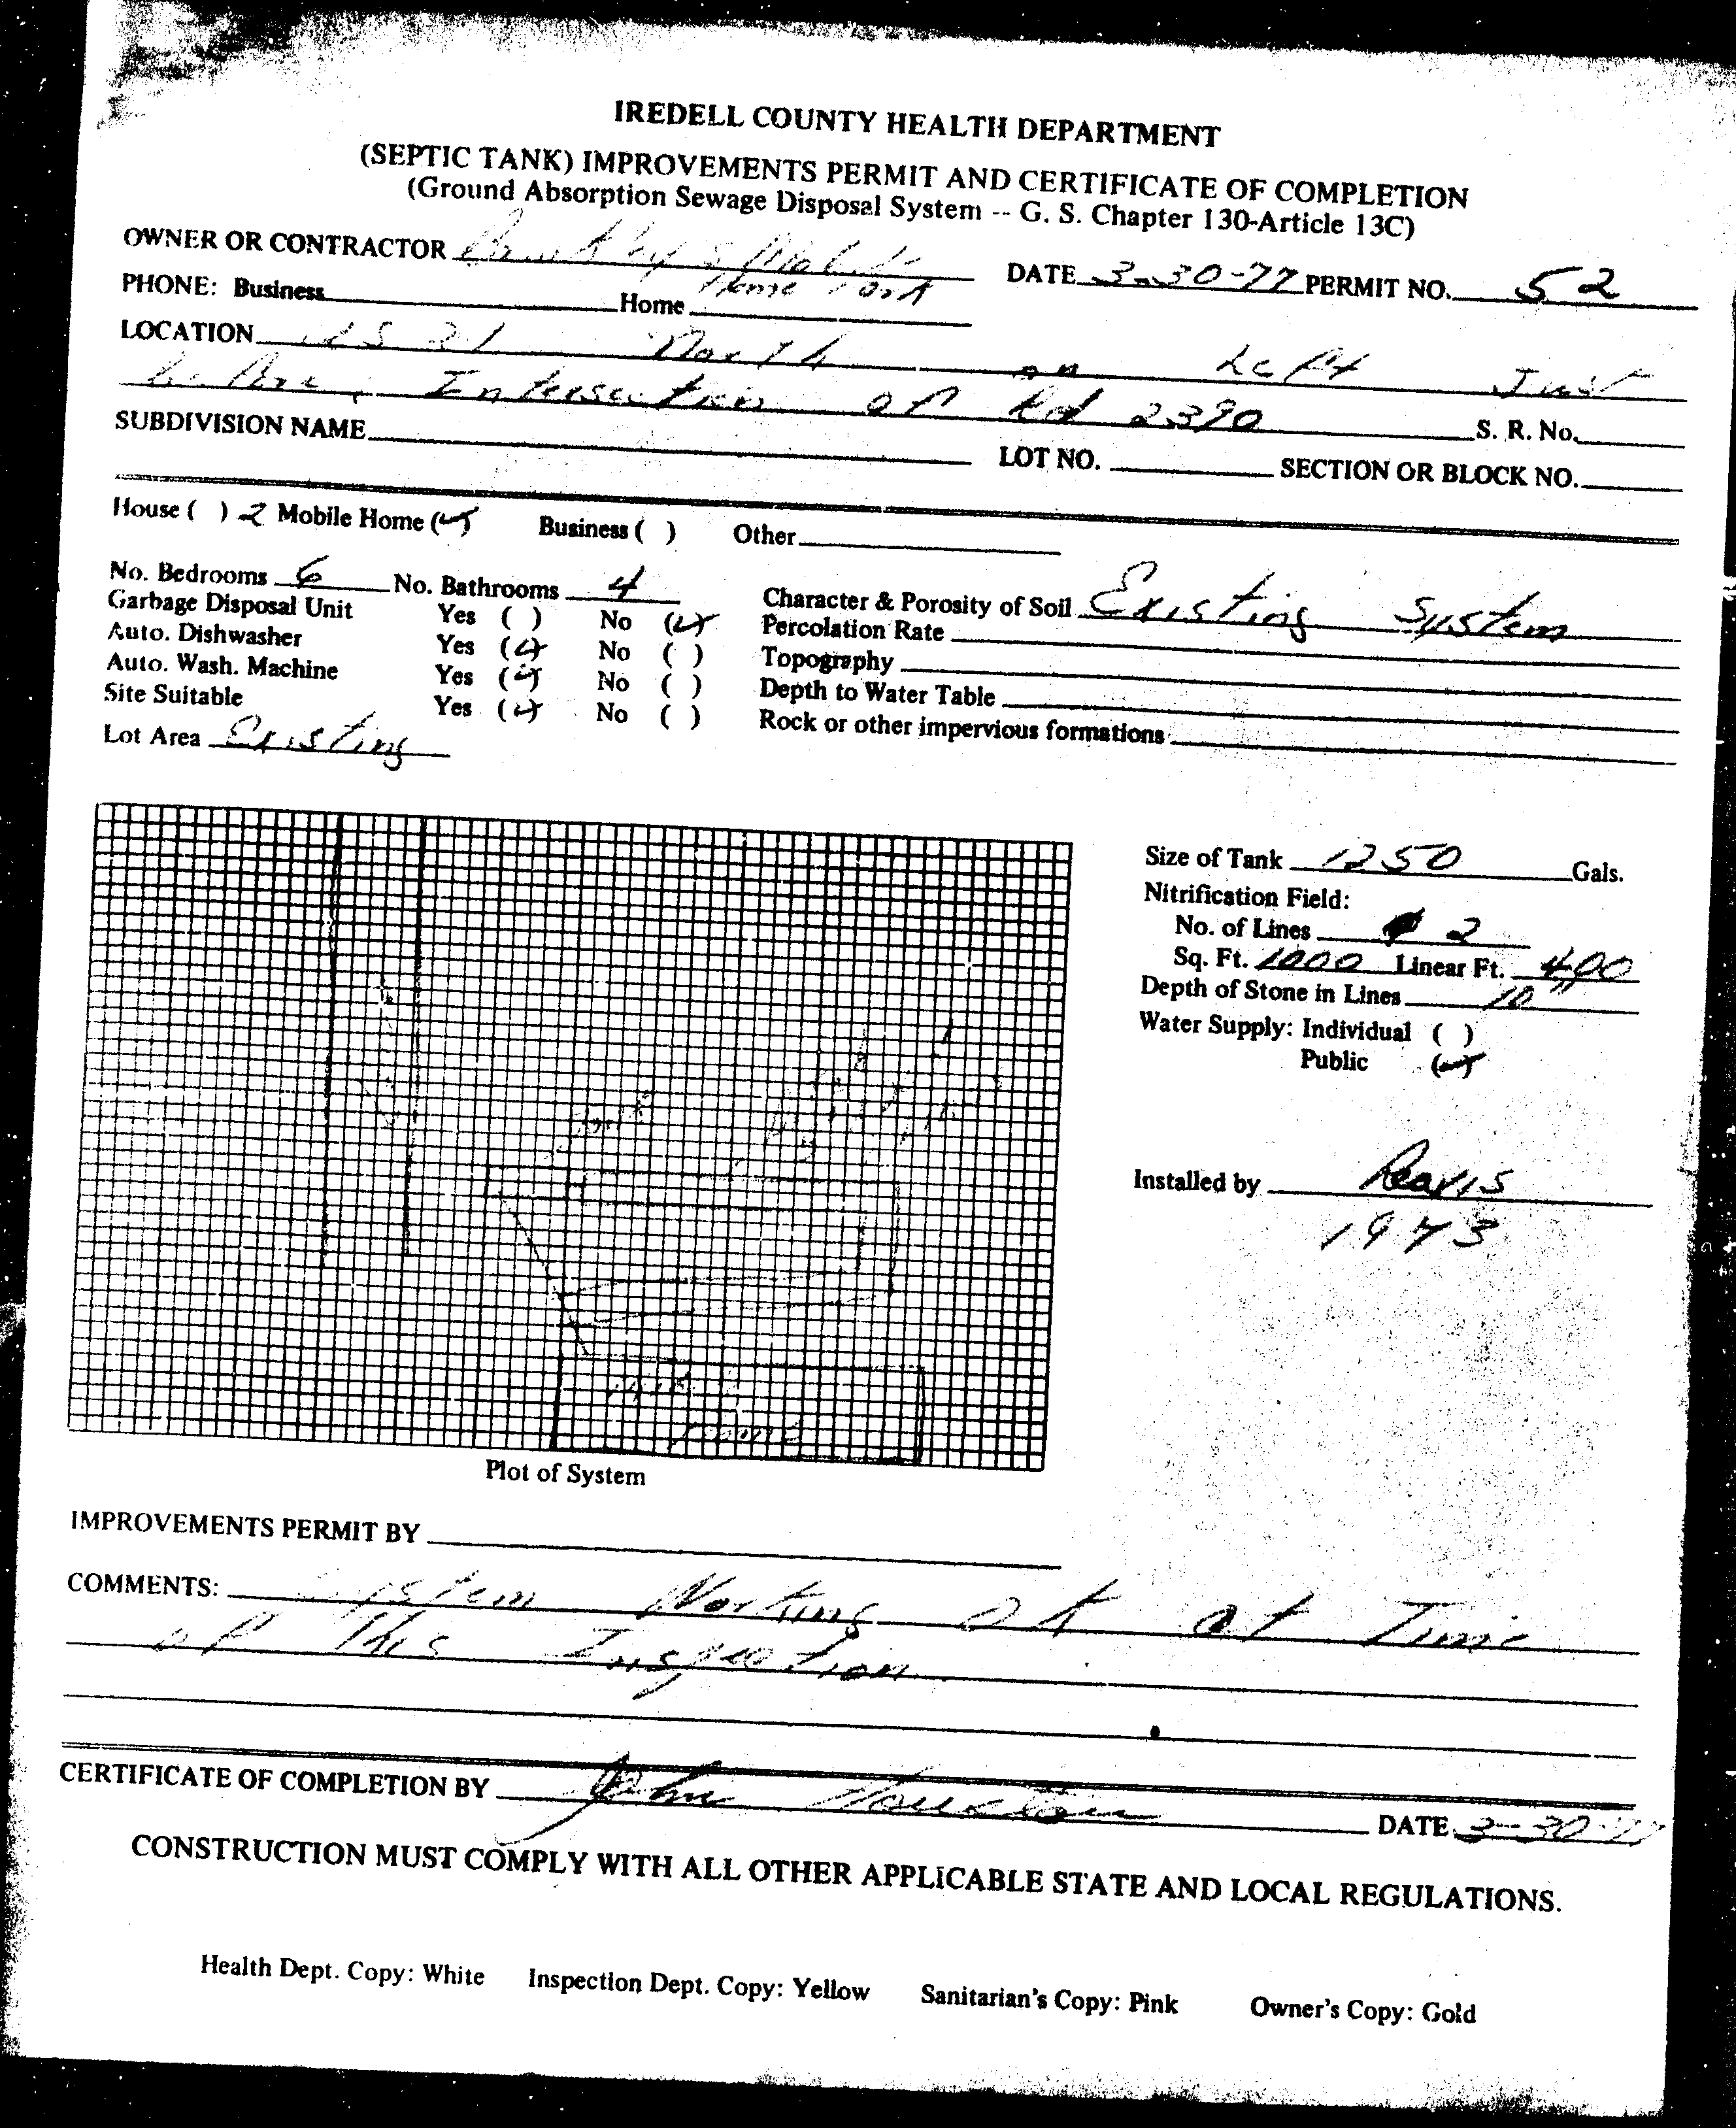 IREDELL COUNTY HEALTH DEPARTMENT
(SEPTIC TANK) IMPROVEMENTS PERMIT AND CERTIFICATE OF COMPLETION
(Ground Absorption Sewage Disposal System -- G. S. Chapter 130-Article 13C)
OWNER OR CONTRACTOR DATE 3-30-77 PERMIT NO. 52
Home Park
PHONE: Business Home
LOCATION US 21 North on Left Just
before Intersection of Rd 2390 S. R. No.
SUBDIVISION NAME LOT NO. SECTION OR BLOCK NO.
House ( ) 2 Mobile Home (✓) Business ( ) Other
No. Bedrooms 6 No. Bathrooms 4 Character & Porosity of Soil Existing System
Garbage Disposal Unit Yes ( ) No (✓) Percolation Rate
Auto. Dishwasher Yes (✓) No ( ) Topography
Auto. Wash. Machine Yes (✓) No ( ) Depth to Water Table
Site Suitable Yes (✓) No ( ) Rock or other impervious formations
Lot Area Existing
Size of Tank 1250 Gals.
Nitrification Field:
No. of Lines 2
Sq. Ft. 1000 Linear Ft. 400
Depth of Stone in Lines 10"
Water Supply: Individual ( )
Public (✓)
Installed by Reavis
1973
Plot of System
IMPROVEMENTS PERMIT BY
COMMENTS: System Working ok at Time
of This Inspection
CERTIFICATE OF COMPLETION BY John DATE 3-30-77
CONSTRUCTION MUST COMPLY WITH ALL OTHER APPLICABLE STATE AND LOCAL REGULATIONS.
Health Dept. Copy: White Inspection Dept. Copy: Yellow Sanitarian's Copy: Pink Owner's Copy: Gold